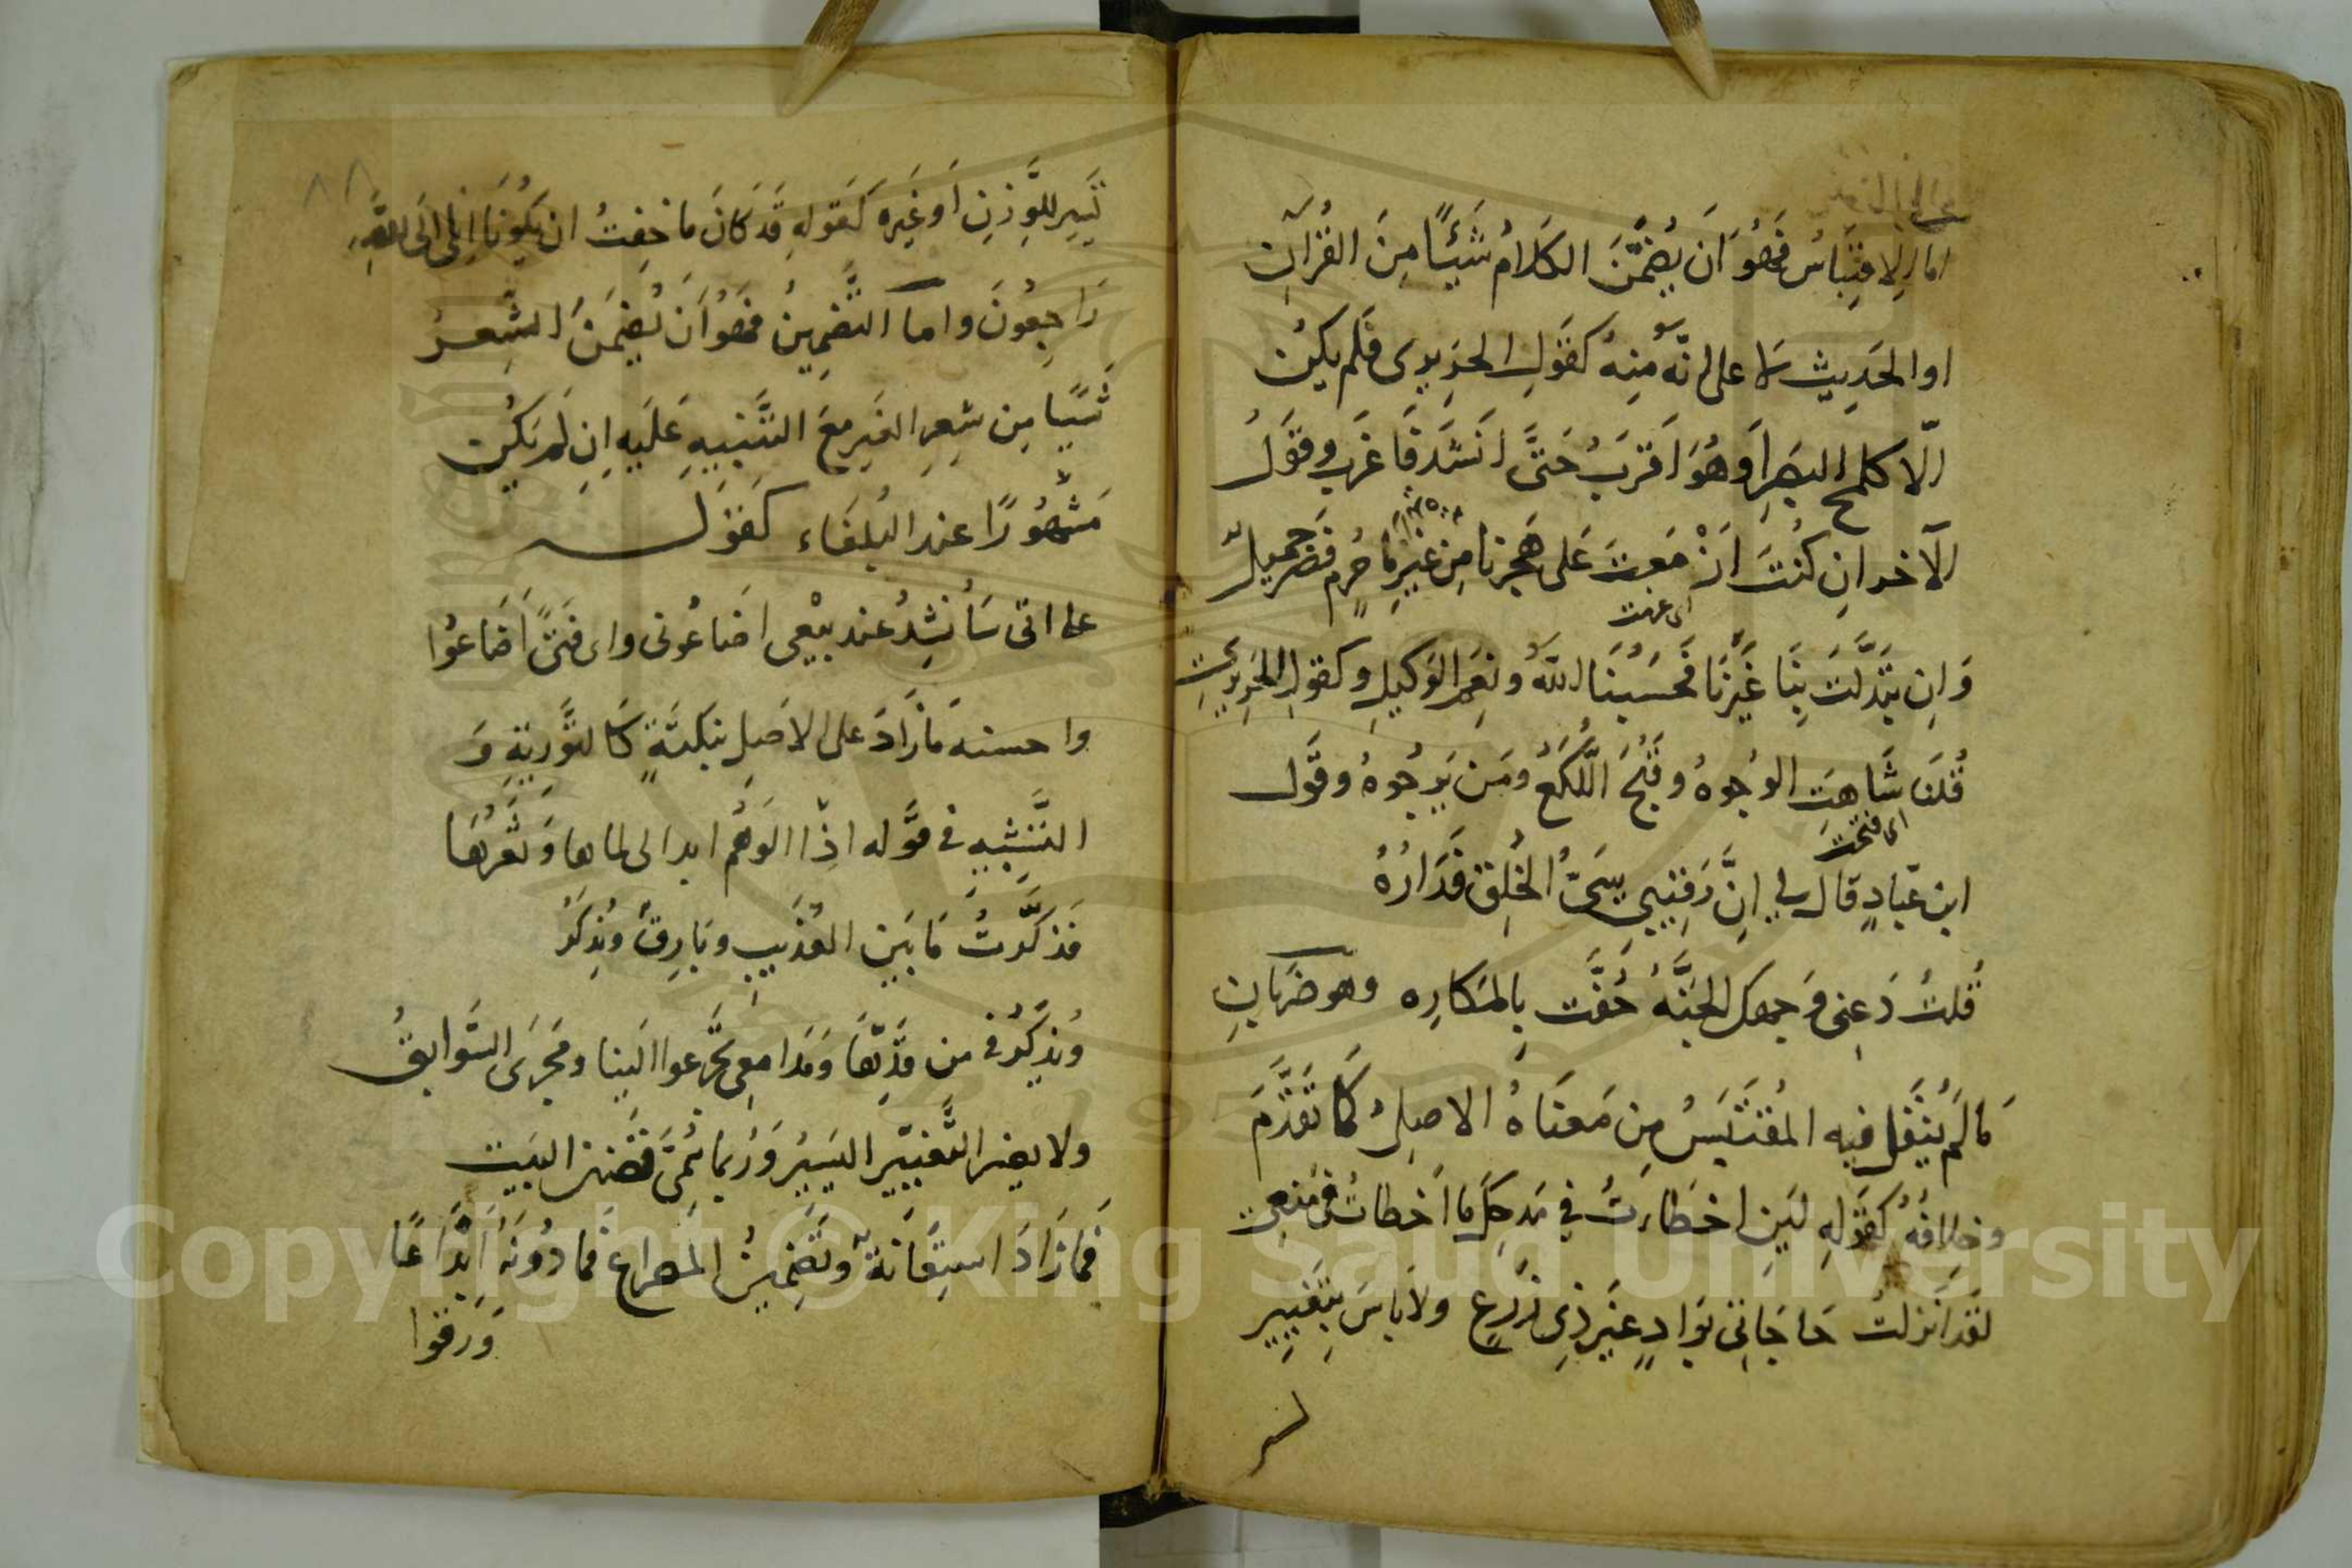 اما الاقتباسُ فَهُوَ اَن يُضَمَّنَ الكَلَامُ شَيْئًا مِنَ القُرآنِ
اوالحَدِيثِ لا على انّه مِنهُ كَقَولِ الحَرِيرِى فَلَم يكُن
الّا كلمح البَصَرِ اَو هُوَ اَقرَبُ حَتّى انشَدَ فَاَغرَب وقَولُ
الآخر ان كُنتَ ازْمَعتَ عَلى هَجرِنا مِن غَيرِ مَا جُرمٍ فَصَبرٌ جميلٌ
اى عزمت
وَاِن تبَدَّلتَ بِنَا غَيرَنَا فَحَسبُنَا اللّهُ وَنِعمَ الوَكيل وكقول الحَرِيرِى
قُلنَا شَاهَتِ الوُجوهُ وقُبحَ اللُّكَعُ ومَن يَرجُوهُ وقَول
اى قبحت
ابن عَبّادٍ قال لى اِنَّ رَقِيبِى سَىّءُ الخُلقِ فَدَارُهُ
قُلتُ دَعنِى وَجهكَ الجَنَّةُ حُفَّت بِالمَكارِه وهو ضَربَانِ
مَا لَم يُنقَل فيه المُقتَبَسُ مِن مَعنَاهُ الاصلِىّ كَمَا تَقَدَّمَ
وخِلافُهُ كَقَولِهِ لَئِن اخطَأتُ فى مَدحِكَ مَا اَخطأتَ فى مَنعِى
لَقَد اَنزلتُ حَاجَاتى بوَادٍ غَيرِ ذِى زَرعٍ ولا بأسَ بِتَغيِير
يَسِيرٍ لِلوَزنِ اَو غَيرِه كَقَولِهِ قَد كَانَ مَا خِفتُ ان يكُونَا انا الى اللّه
رَاجِعُونَ واما التَّضمِينُ فَهُوَ اَن يُضَمَّنَ الشِّعرُ
شَيئًا مِن شِعرِ الغَيرِ مَعَ التَّنبِيهِ عَلَيهِ اِن لَم يَكُن
مَشهُورًا عند البُلغَاء كَقَوله
على انّى سَاُنشِدُ عند بيْعى اَضَاعُونى واى فَتًى اَضَاعُوا
واحسنه مَا زَادَ على الاصلِ بنكتَةٍ كَالتَّورِيَةِ وَ
التَّشبِيهِ فى قَوله اذا الوَهمُ ابدا لى لماها وَثَغرَهَا
تَذَكَّرتُ مَا بَينَ العُذَيبِ وبَارِقٍ ويُذكِرُ
وَيُذكِرُنى من قَدِّهَا وَمَدَامعِى مَجَرّ عوالينا ومَجرَى السَّوابِقُ
ولا يضر التَّغيِيرُ اليَسِيرُ وَرُبما سُمِّىَ تَضمِينُ البَيت
فَمَا زَادَ استِعَانَةً وتَضمِينُ المِصراعِ فَمَا دُونَهُ اِيدَاعًا
وَرَفوًا